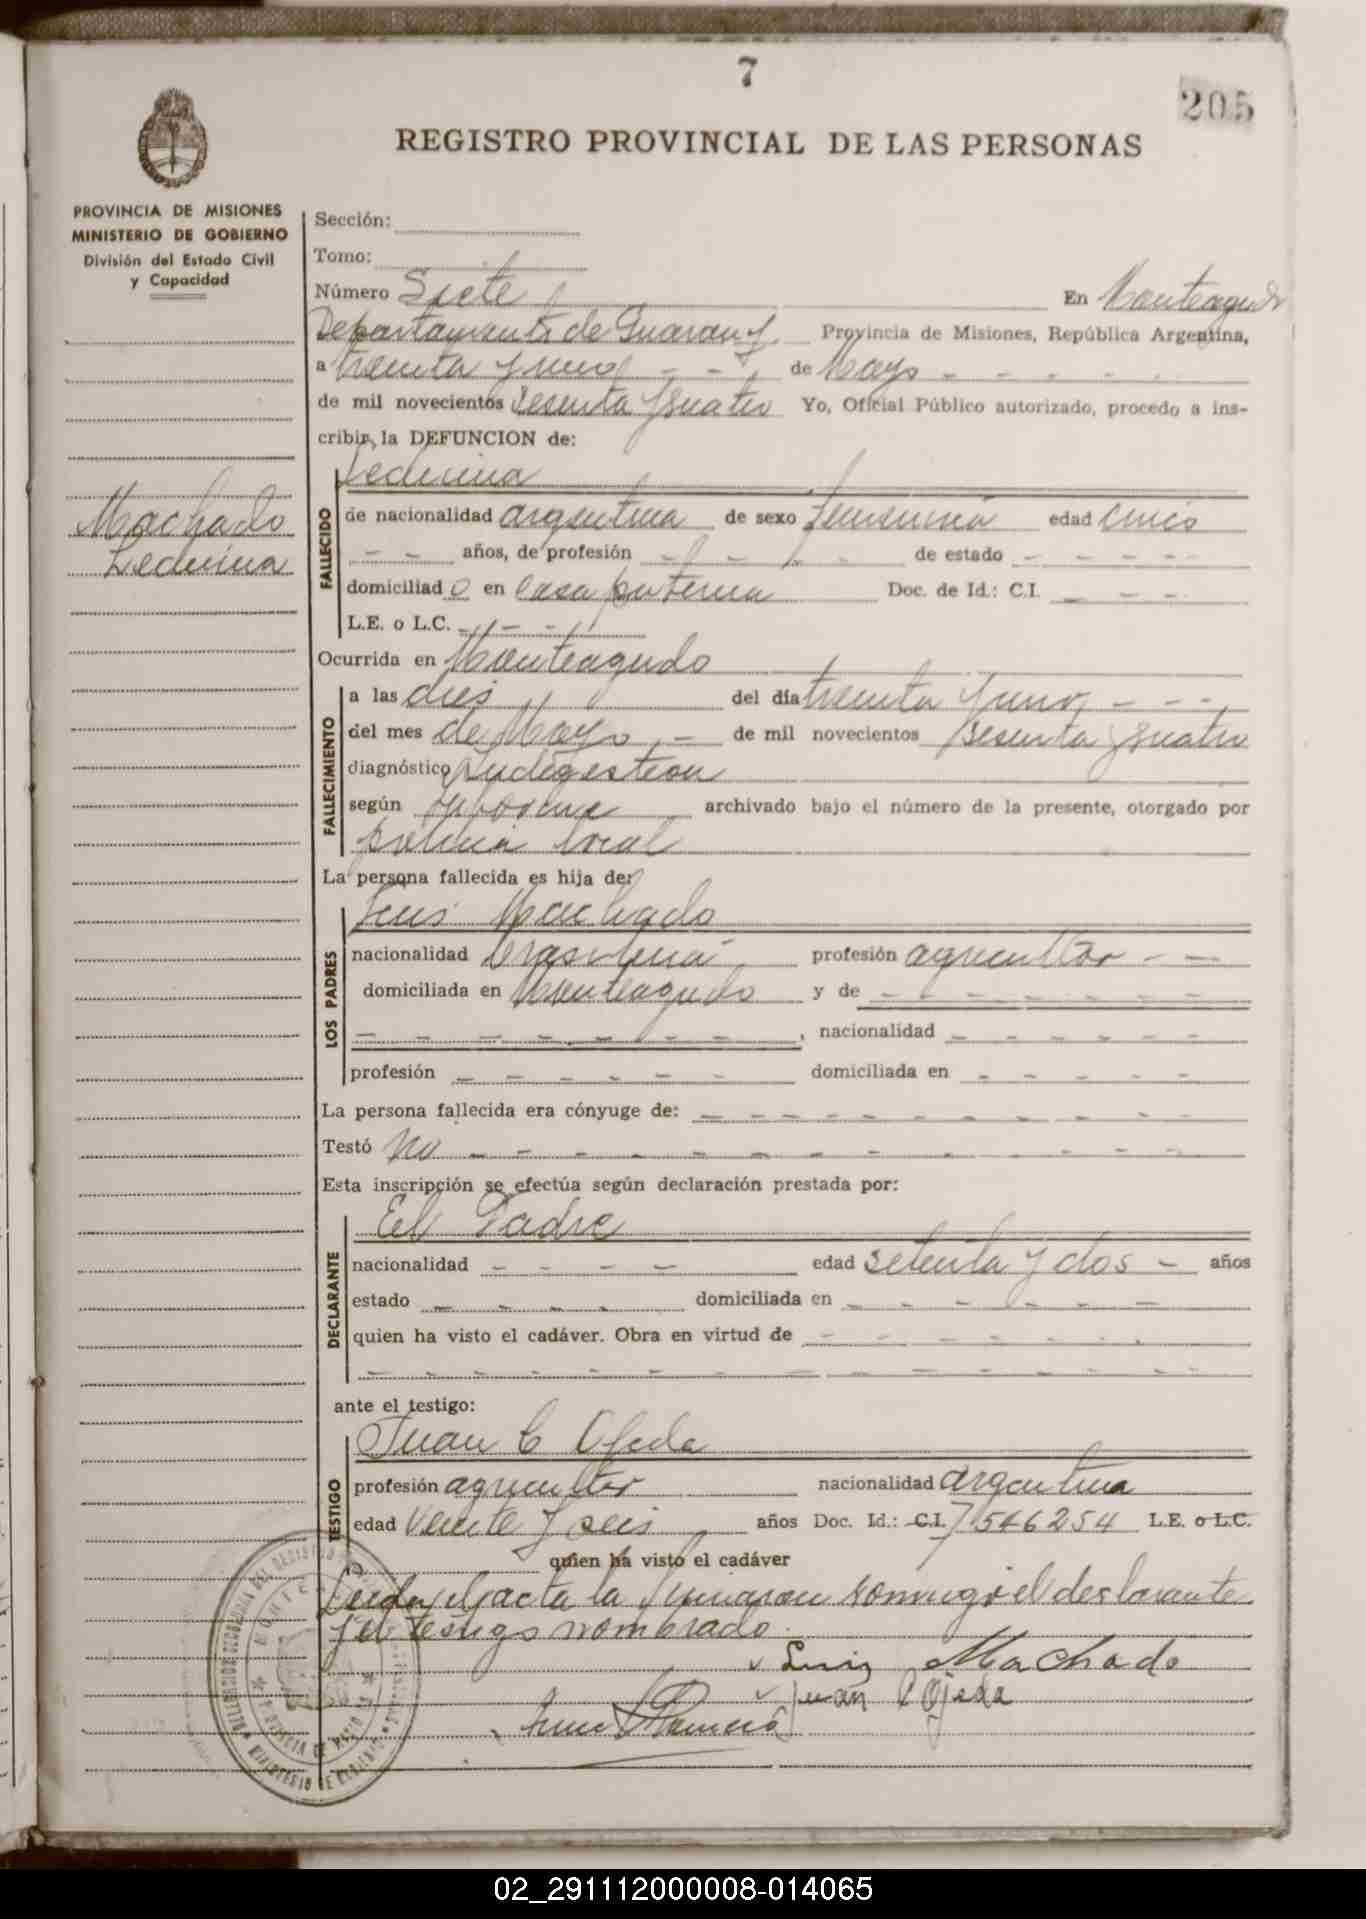 7
205
REGISTRO PROVINCIAL DE LAS PERSONAS
PROVINCIA DE MISIONES
MINISTERIO DE GOBIERNO
División del Estado Civil
y Capacidad
Machado
Ledvina
Sección:
Tomo:
Número Siete En Monteagudo
Departamento de Guarany Provincia de Misiones, República Argentina,
a treinta y uno - - de Mayo - - - - -
de mil novecientos sesenta y cuatro Yo, Oficial Público autorizado, procedo a ins-
cribir la DEFUNCION de:
FALLECIDO
de nacionalidad argentina de sexo femenina edad cinco
- - años, de profesión - - - de estado - - - - -
domiciliado en casa paterna Doc. de Id.: C.I. - - -
L.E. o L.C. - - -
Ocurrida en Monteagudo
FALLECIMIENTO
a las dies del día treinta y uno - - -
del mes de Mayo - de mil novecientos sesenta y cuatro
diagnóstico Indigestion
según informe archivado bajo el número de la presente, otorgado por
policia local
La persona fallecida es hija de:
LOS PADRES
Luis Machado
nacionalidad brasilena profesión agricultor - -
domiciliada en Monteagudo y de - - - - - - -
- - - - - - -, nacionalidad - - - - - -
profesión - - - - - - domiciliada en - - - - -
La persona fallecida era cónyuge de: - - - - - - - - - - -
Testó No - - - - - - - - - - - - -
Esta inscripción se efectúa según declaración prestada por:
DECLARANTE
El Padre
nacionalidad - - - - edad setenta y dos - años
estado - - - - domiciliada en - - - - - -
quien ha visto el cadáver. Obra en virtud de - - - - - - -
- - - - - - - - - - - - - - -
ante el testigo:
TESTIGO
Juan C Ojeda
profesión agricultor nacionalidad argentina
edad veinte y seis años Doc. Id.: C.I. 7546254 L.E. o L.C.
quien ha visto el cadáver
Leida el acta la firmaron conmigo el declarante
y el testigo nombrado.
Luis Machado
Juan C Ojeda
02_291112000008-014065